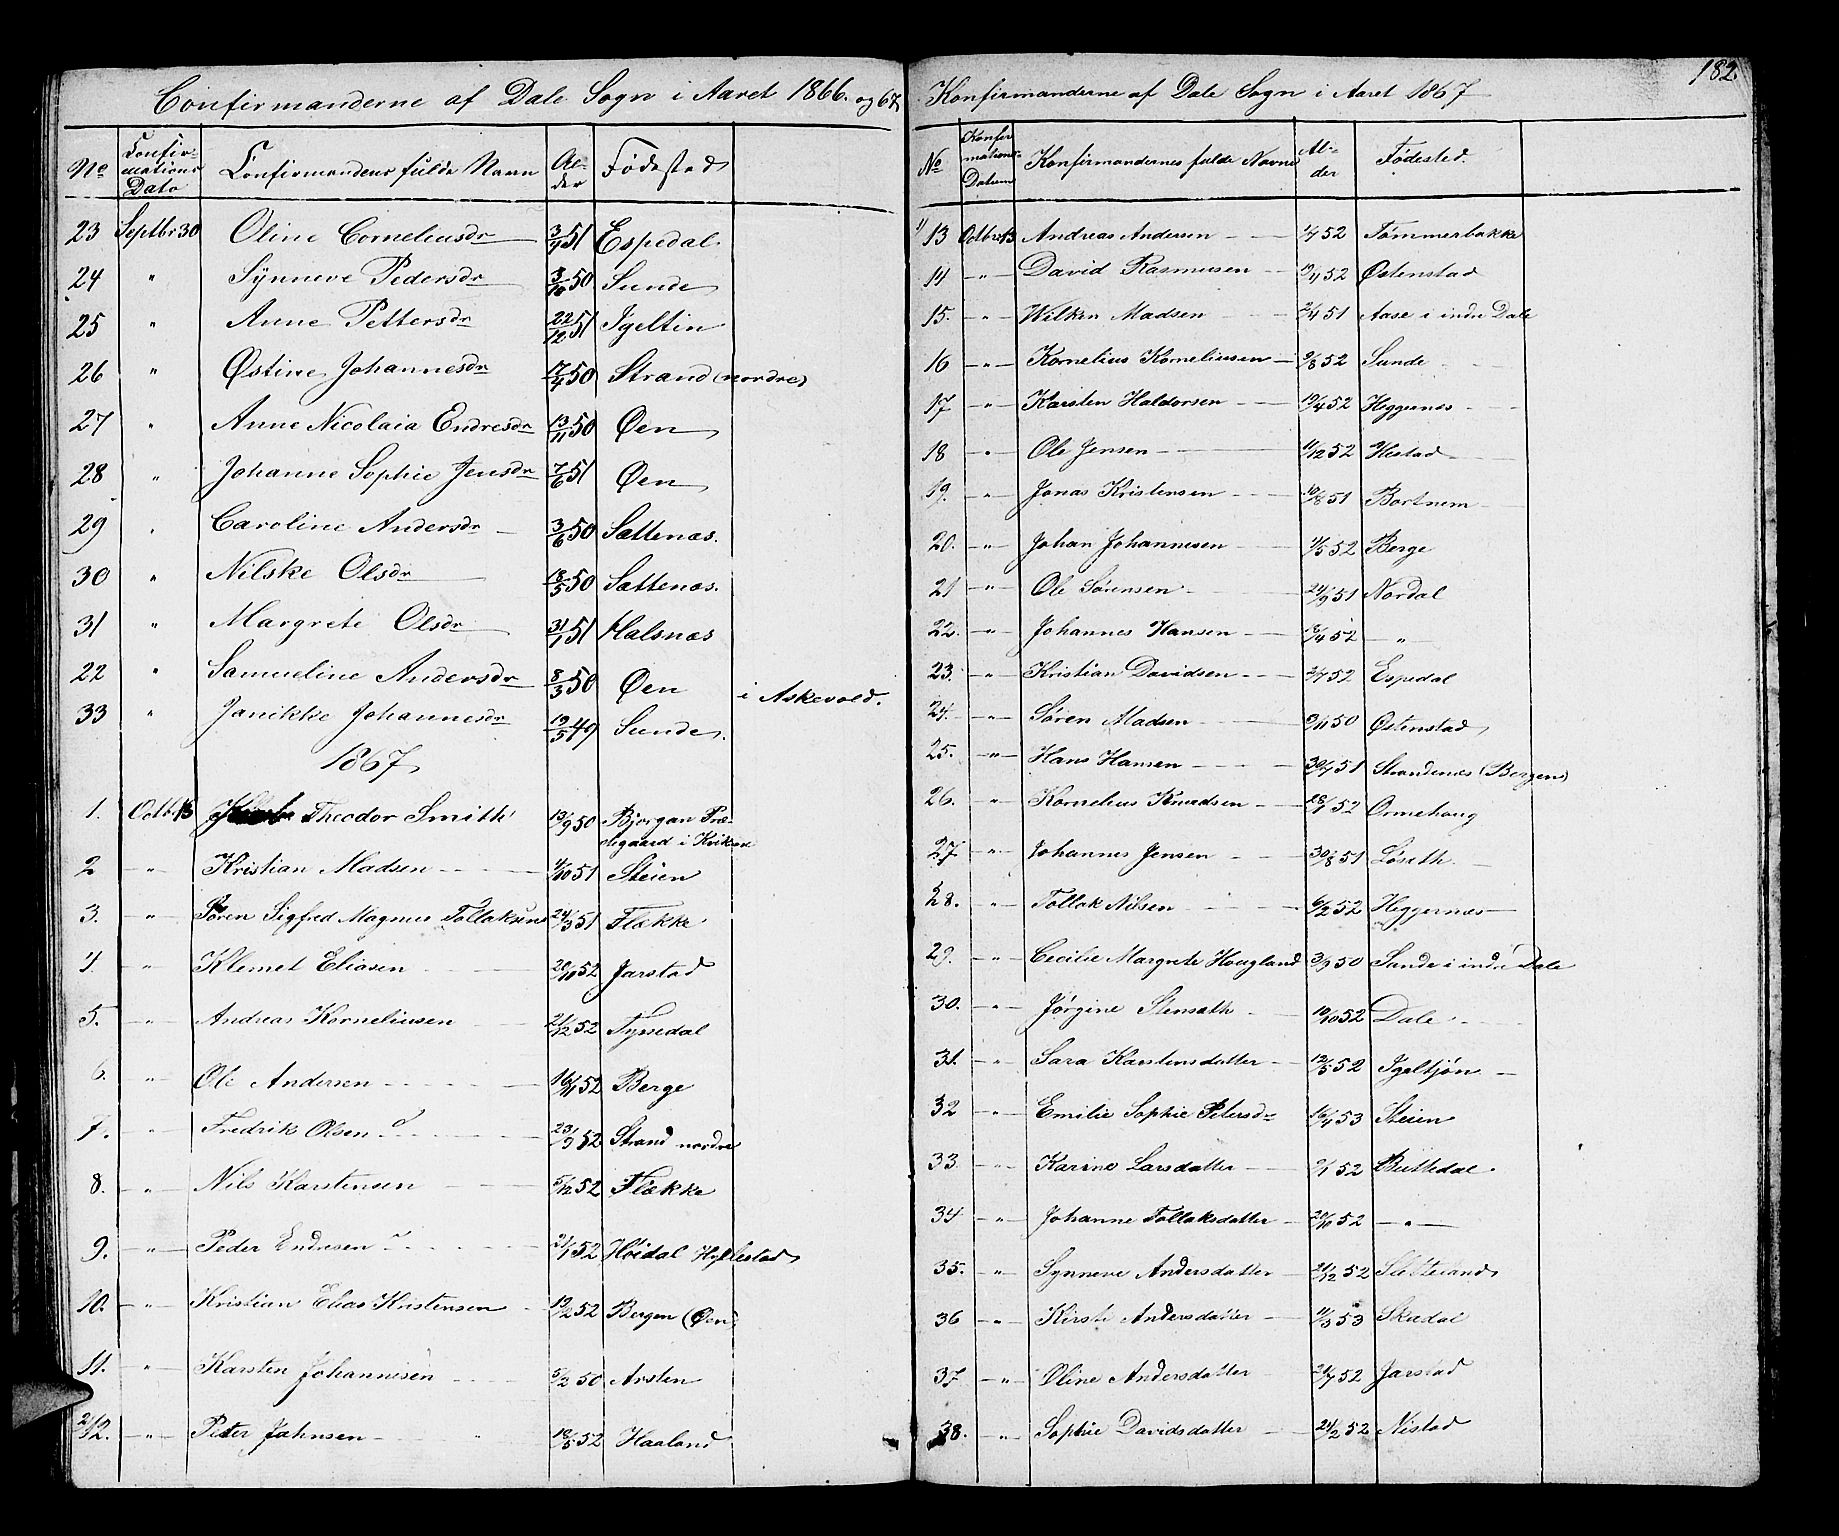 Confirmanderne af Dale Sogn i Aaret 1866. og 67
No Confirmations Dato Confirmandens fulde Navn Alder Fødested
23 Septbr 30 Oline Corneliusdr 3/4 51 Espedal
24 " Synneve Pedersdr 3/10 50 Sunde
25 " Anne Pettersdr 22/12 51 Igeltin
26 " Østine Johannesdr 17/4 50 Strand (nordre)
27 " Anne Nicolaia Endresdr 13/11 50 Øen
28 " Johanne Sophie Jensdr 7/6 51 Øen
29 " Caroline Andersdr 3/6 50 Sættenæs.
30 " Nilske Olsdr 18/5 50 Sættenæs.
31 " Margrete Olsdr 31/1 51 Halsnæs
22 " Samueline Andersdr 8/3 50 Øen i Askevold.
33 " Janikke Johannesdr 19/5 49 Sunde.
1867
1. Octb. 13 Theodor Smith 13/9 50 Bjorgan Præstegaard i Kvikne
2 -"- Kristian Madsen 4/10 51 Steien
3. -"- Søren Sigfred Magnus Tollaksen 24/3 51 Flekke
4. -"- Klemet Eliasen 20/10 52 Jarstad
5. -"- Andreas Korneliusen 21/12 52 Tyssedal
6. -"- Ole Andersen 16/11 52 Berge
7. -"- Fredrik Olsen 23/9 52 Strand nordre
8. -"- Nils Karstensen 5/12 52 Flekke
9. -"- Peder Endresen 21/1 52 Høidal Hyllestad
10. -"- Kristian Elias Kristensen 19/2 52 Bergen (Øen)
11. -"- Karsten Johannesen 5/2 50 Arsten
12. -"- Peter Johnsen 18/5 52 Haaland
182.
Konfirmanderne af Dale Sogn i Aaret 1867
No Konfirmations Datum Konfirmandernes fulde Navne Alder Fødested.
13 Octbr 13 Andreas Andersen 1/7 52 Tømmerbakke
14 -"- David Rasmusen 19/4 52 Østenstad
15. -"- Wilken Madsen 2/4 51 Aase i indre Dale
16 -"- Kornelius Korneliusen 9/8 52 Sunde
17 -"- Karsten Haldorsen 19/4 52 Heggernes
18 -"- Ole Jensen 11/12 52 Hestad
19. -"- Jonas Kristensen 10/8 51 Bortnem
20. -"- Johan Johannesen 4/5 52 Berge
21 -"- Ole Sørensen 24/9 51 Nordal
22. -"- Johannes Hansen 18/4 52 -"-
23. -"- Kristian Davidsen 2/7 52 Espedal
24. -"- Søren Madsen 9/11 50 Østenstad
25. -"- Hans Hansen 30/7 51 Strandenæs (Bergen)
26. -"- Kornelius Knudsen 28/1 52 Ormehaug
27. -"- Johannes Jensen 30/8 51 Løseth
28. -"- Tollak Nilsen 6/2 52 Heggernæs
29. -"- Cecilie Margrete Hougland 3/9 50 Sande i indre Dale
30. -"- Jørgine Stensæth 10/10 52 Dale
31. -"- Sara Karstensdatter 12/5 52 Igeltjøn
32 -"- Emilie Sophie Petersdr 16/4 53 Steien
33. -"- Karine Larsdatter 9/1 52 Buttedal
34 -"- Johanne Tollaksdatter 20/10 52 -"-
35. -"- Synneve Andersdatter 21/12 52 Sletteland
36 -"- Kirsti Andersdatter 11/3 53 Skudal
37 -"- Oline Andersdatter 24/7 52 Jarstad
38. -"- Sophie Davidsdatter 24/2 52 Nistad